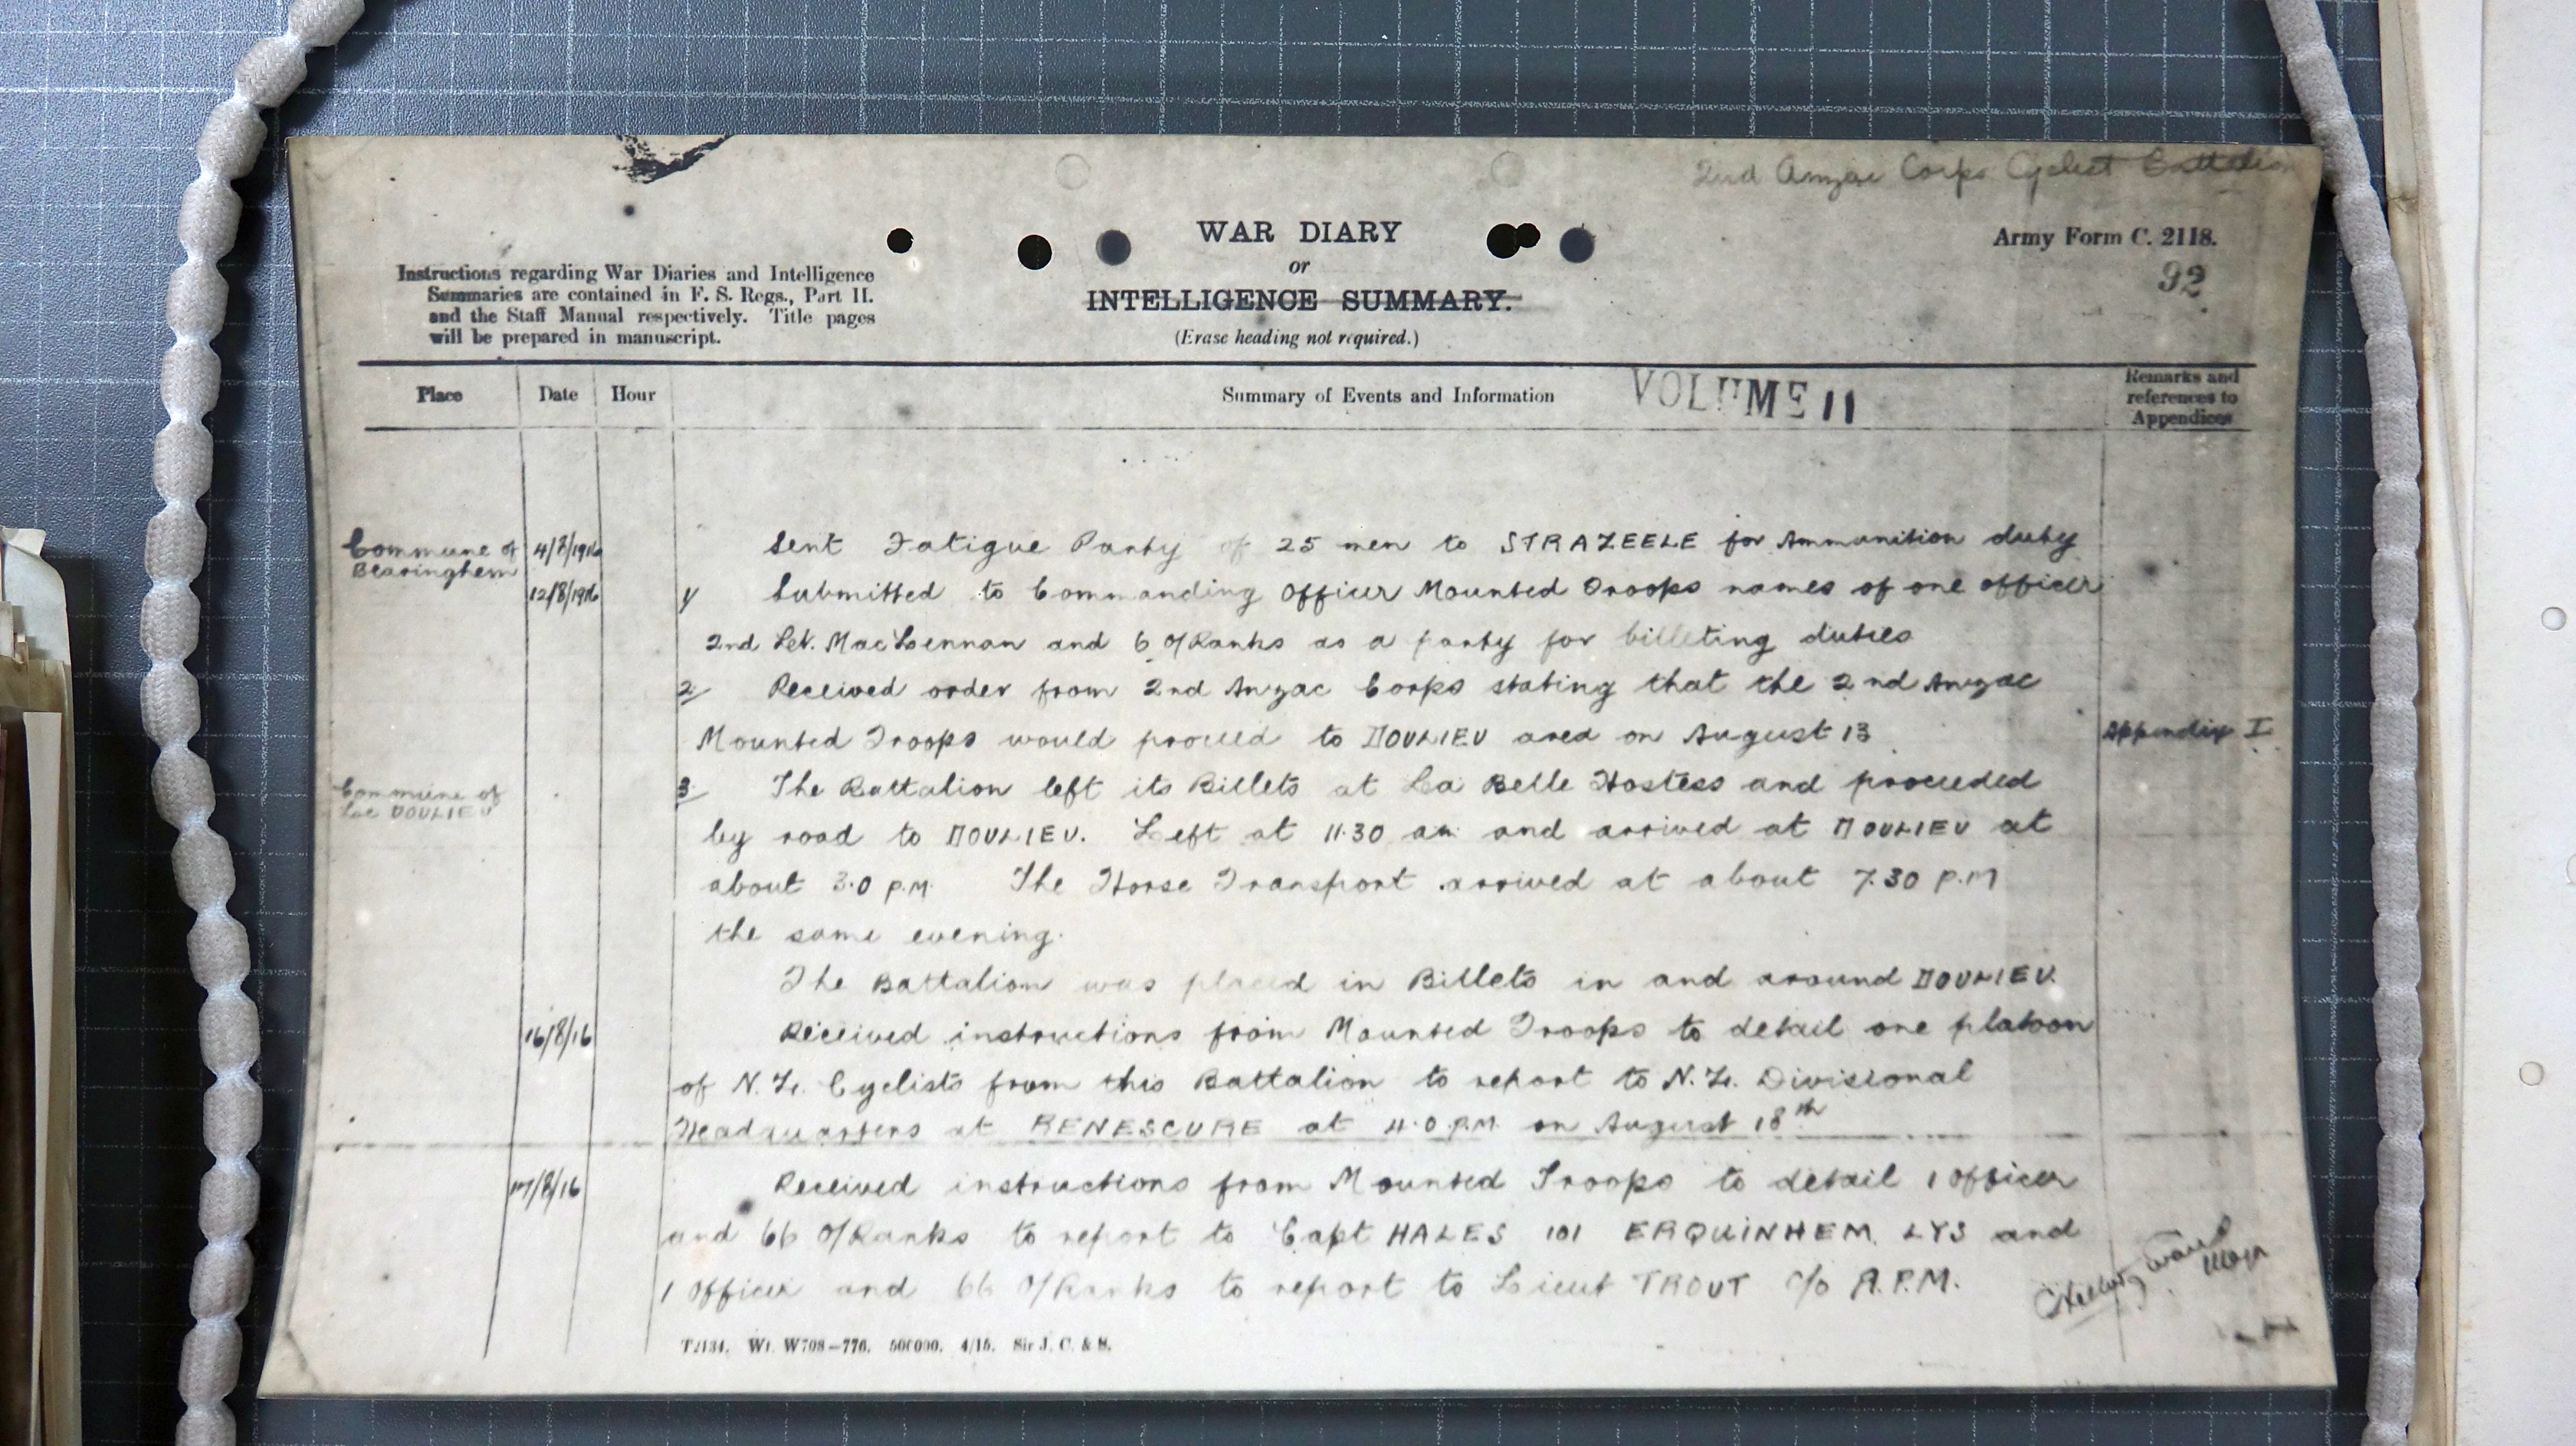 2nd Anzac Corps Cyclist Battalion
WAR DIARY
or
INTELLIGENCE SUMMARY.
(Erase heading not required.)
Army Form C. 2118.
92
Instructions regarding War Diaries and Intelligence
Summaries are contained in F. S. Regs., Part II.
and the Staff Manual respectively. Title pages
will be prepared in manuscript.
Place Date Hour Summary of Events and Information VOLUME 11 Remarks and
references to
Appendices
Commune of 4/8/1916 Sent Fatigue Party of 25 men to STRAZEELE for Ammunition duty
12/8/1916 1/ Submitted to Commanding Officer Mounted Troops names of one officer
2nd Lt. MacLennan and 6 O/Ranks as a party for billeting duties
2/ Received order from 2nd Anzac Corps stating that the 2nd Anzac
Mounted Troops would proceed to DOULIEU area on August 13 Appendix I
Commune of 3/ The Battalion left its Billets at La Belle Hostess and proceeded
DOULIEU by road to DOULIEU. Left at 11.30 am and arrived at DOULIEU at
about 3.0 P.M. The Horse Transport arrived at about 7.30 P.M
the same evening.
The Battalion was placed in Billets in and around DOULIEU.
16/8/16 Received instructions from Mounted Troops to detail one platoon
of N.Z. Cyclists from this Battalion to report to N.Z. Divisional
Headquarters at RENESCURE at 4.0 P.M. on August 18th
17/8/16 Received instructions from Mounted Troops to detail 1 Officer
and 66 O/Ranks to report to Capt HALES 101 ERQUINHEM LYS and
1 Officer and 66 O/Ranks to report to Lieut TROUT C/o A.P.M.
Major
Wt. W708—776. 500000. 4/15. Sir J. C. & S.